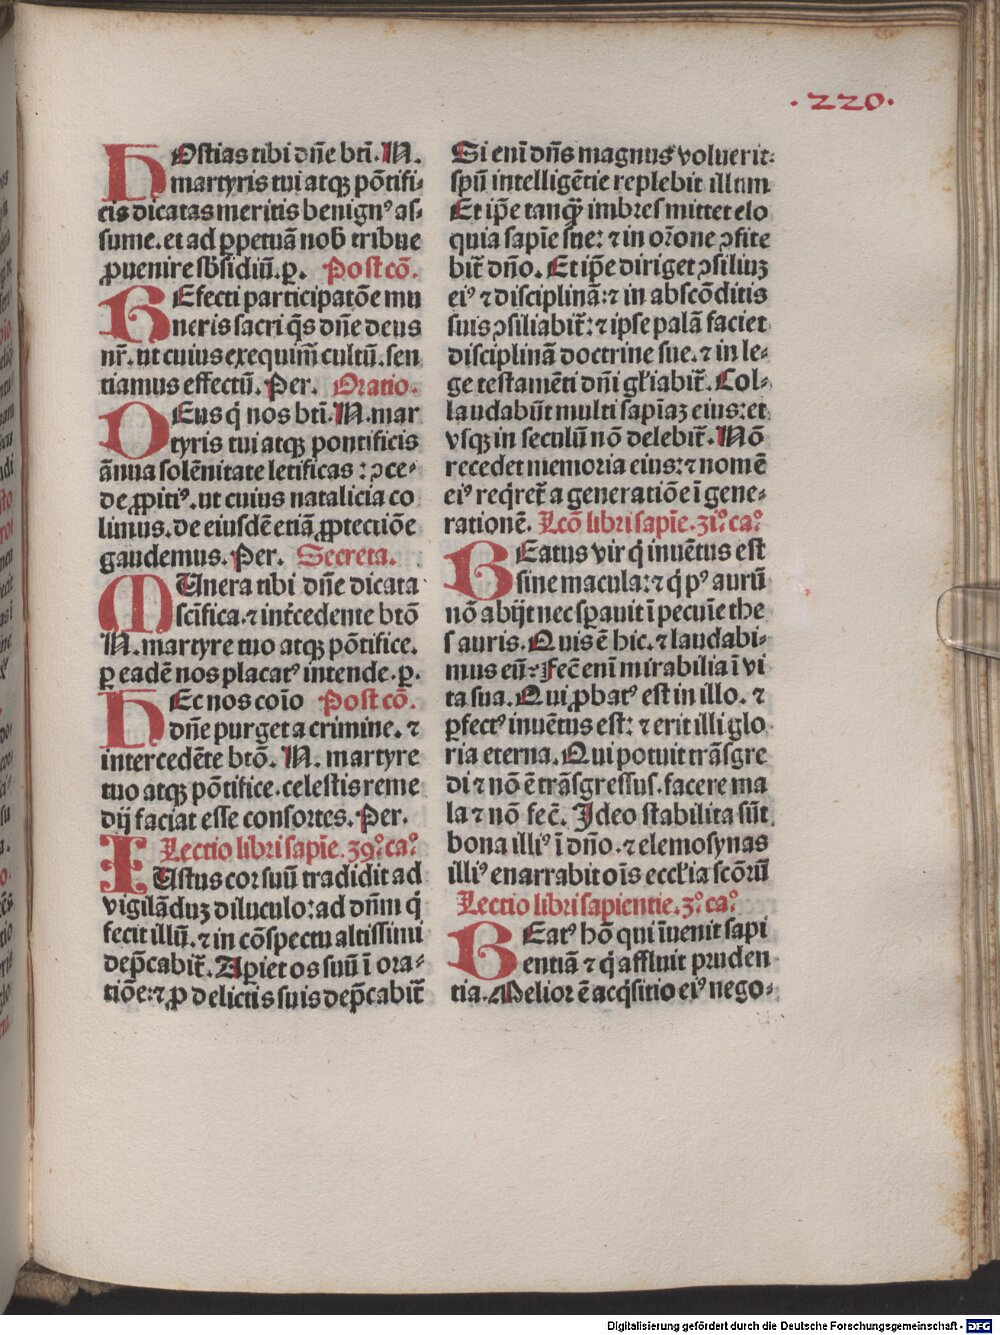 ·220·
HOstias tibi dn̄e bt̄i. N.
martyris tui atqȝ pōtifi-
cis dicatas meritis benignꝰ as-
sume. et ad ꝑpetuā nob̄ tribue
ꝓuenire sb̄sidiū. ꝑ. Post cō.
REfecti participatōe mu
neris sacri q̄s dn̄e deus
nr̄. ut cuius exequim̄ cultū. sen
tiamus effectū. Per. Oratio.
DEus q̄ nos bt̄i. N. mar
tyris tui atqȝ pontificis
ānua solēnitate letificas: ↄce-
de ꝓpitiꝰ. ut cuius natalicia co
limus. de eiusdē etiā ꝓtectiōe
gaudemus. Per. Secreta.
MUnera tibi dn̄e dicata
sc̄ifica. ⁊ int̄cedente bt̄o
N. martyre tuo atqȝ pōtifice.
ꝑ eadē nos placatꝰ intende. ꝑ.
HEc nos cōio Post cō.
dn̄e purget a crimine. ⁊
intercedēte bt̄o. N. martyre
tuo atqȝ pōtifice. celestis reme
dij faciat esse consortes. Per.
Lectio libri sapīe. 39º. caº.
IUstus cor suū tradidit ad
vigilāduȝ diluculo: ad dn̄m q̄
fecit illū. ⁊ in cōspectu altissimi
dep̄cabit̄. Apiet os suū ī ora-
tiōe: ⁊ ꝓ delictis suis dep̄cabit̄
Si enī dn̄s magnus voluerit:
spū intelligētie replebit illum
Et ip̄e tanqȝ̄ imbres mittet elo
quia sapīe sue: ⁊ in or̄one ↄfite
bit̄ dn̄o. Et ip̄e diriget ↄsiliuȝ
eiꝰ ⁊ disciplinā: ⁊ in abscōditis
suis ↄsiliabit̄: ⁊ ipse palā faciet
disciplinā doctrine sue. ⁊ in le-
ge testamēti dn̄i gl̄iabit̄. Col-
laudabūt multi sapīaȝ eius: et
vsqȝ in seculū nō delebit̄. Nō
recedet memoria eius: ⁊ nomē
eiꝰ req̄ret̄ a generatiōe ī gene-
rationē. Lcō libri sapīe. 31º. caº.
BEatus vir q̄ inuētus est
sine macula: ⁊ q̄ pꝰ aurū
nō abijt nec sꝑauit ī pecuīe the
sauris. Quis ē hic. ⁊ laudabi-
mus eū: fec̄ enī mirabilia ī vi
ta sua. Qui ꝓbatꝰ est in illo. ⁊
ꝑfectꝰ inuētus est: ⁊ erit illi glo
ria eterna. Qui potuit trāsgre
di ⁊ nō ē trāsgressus. facere ma
la ⁊ nō fec̄. Ideo stabilita sūt
bona illiꝰ ī dn̄o. ⁊ elemosynas
illiꝰ enarrabit oīs eccl̄ia scōrū
Lectio libri sapientie. 3º. caº.
BEatꝰ hō qui īuenit sapi
entiā ⁊ q̄ affluit pruden
tia. Melior ē acq̄sitio eiꝰ nego-
Digitalisierung gefördert durch die Deutsche Forschungsgemeinschaft - DFG